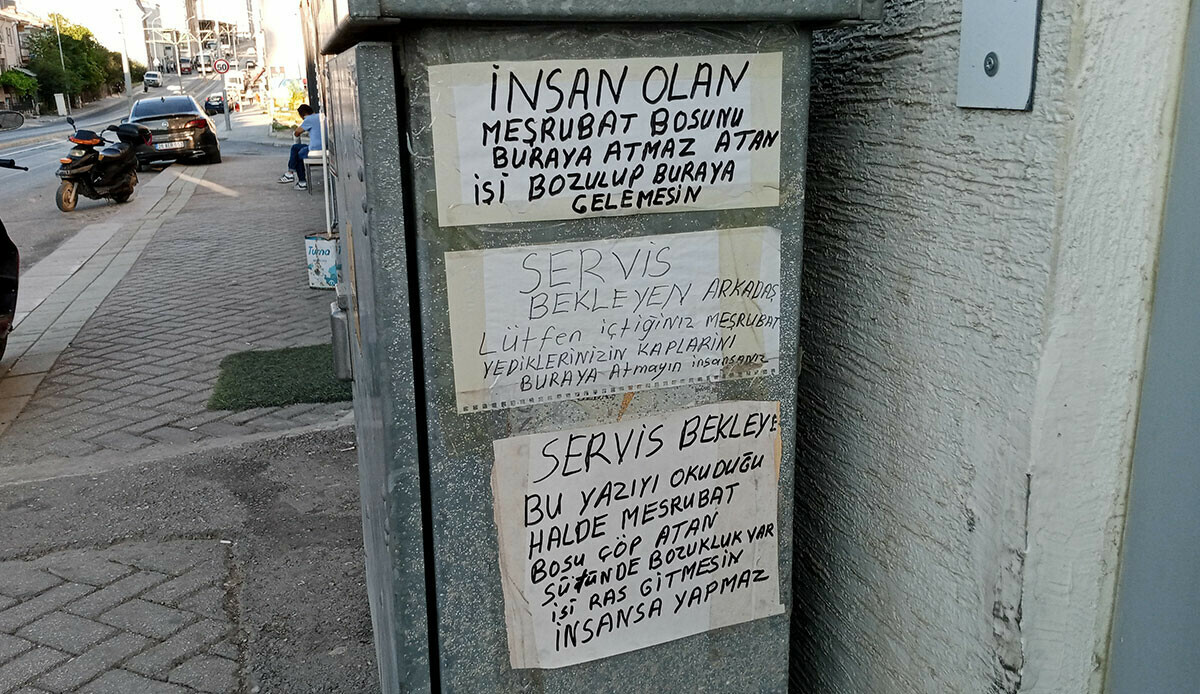 İNSAN OLAN
MEŞRUBAT BOSUNU
BURAYA ATMAZ ATAN
İŞİ BOZULUP BURAYA
GELEMESİN
SERVİS
BEKLEYEN ARKADAŞ
Lütfen içtiğiniz MEŞRUBAT
YEDİKLERİNİZİN KAPLARINI
BURAYA Atmayın insansanız
SERVİS BEKLEYE
BU YAZIYI OKUDUĞU
HALDE MESRUBAT
BOSU ÇÖP ATAN
SÜTÜNDE BOZUKLUK VAR
İŞİ RAS GİTMESİN
İNSANSA YAPMAZ
50
Turna